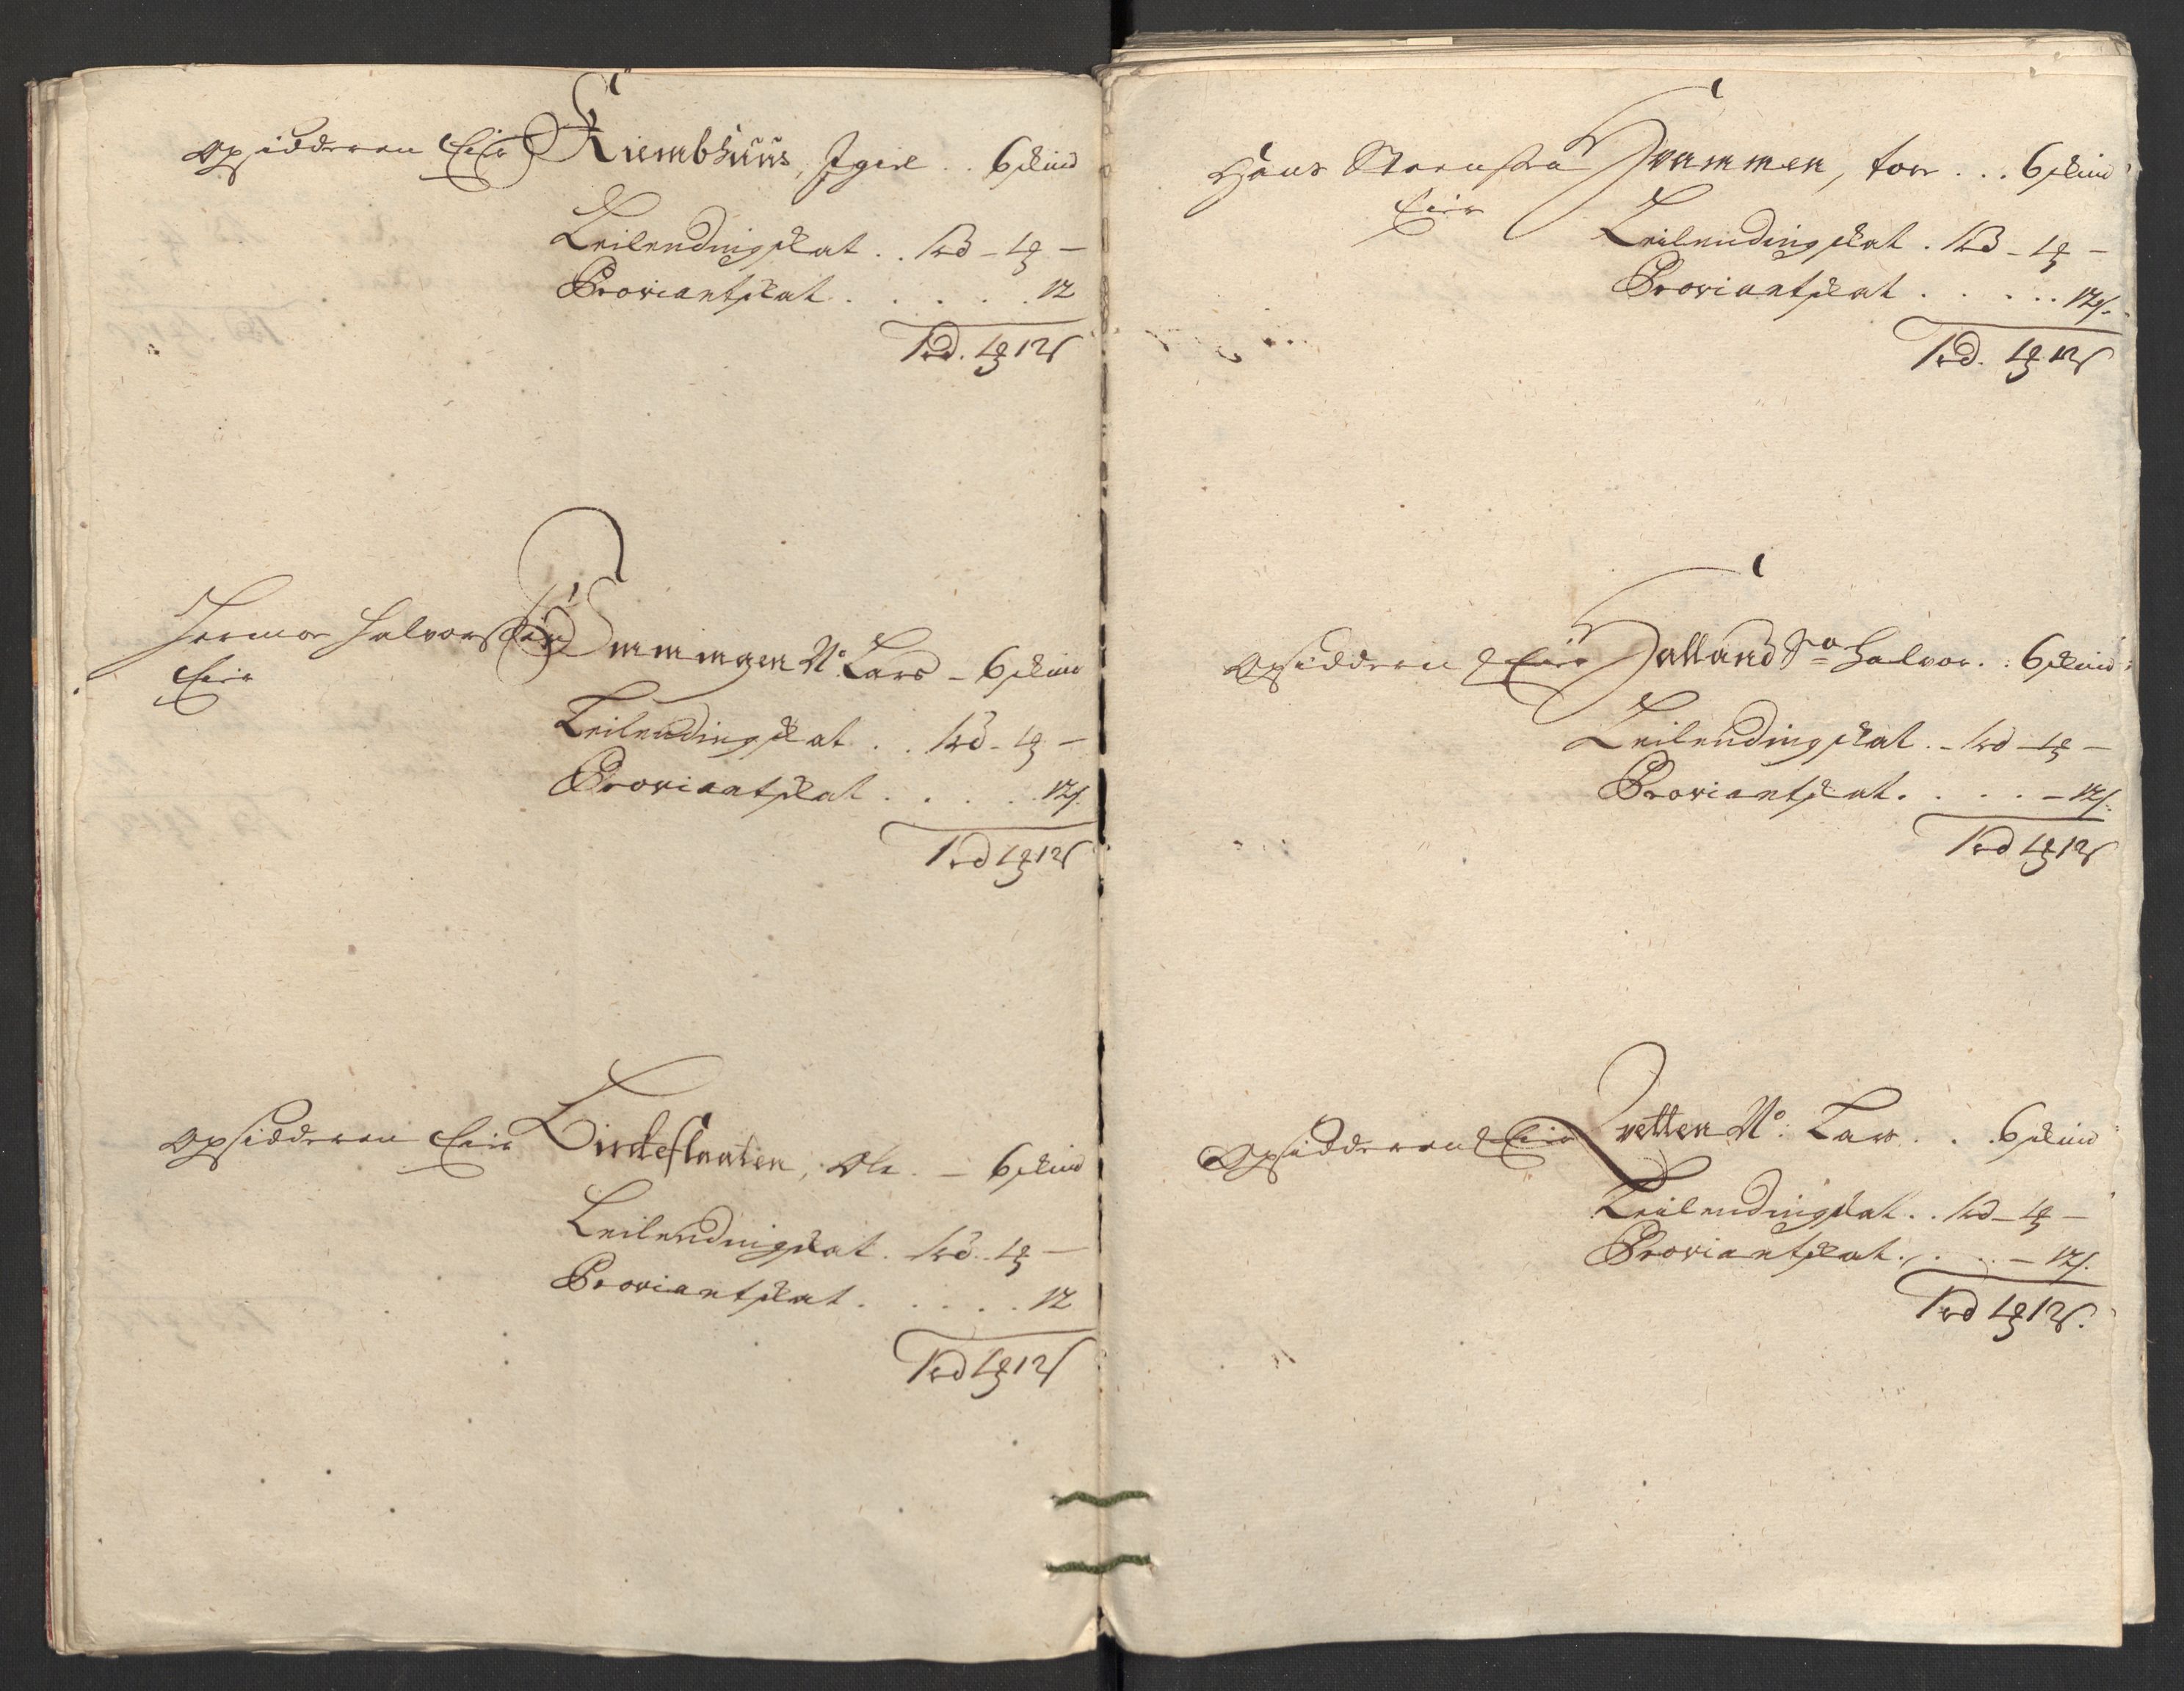 Opsidderen Eier Kiembhuus, Jgiel . . 6 skind
Leilendingskat . . 1 rd - 1 ß -
Proviantskat . . . . . . 12
1 rd. 1 ß 12 s
Jermoe Halvorsen Emmingen N: Lars - 6 skind
Eier
Leilendingskat . . 1 rd - 1 ß -
Proviantskat . . . . . 12 s.
1 rd 1 ß 12 s
Opsidderen Eier Lindeflaaten, Ole. - 6 skind
Leilendingskat . 1 rd . 1 ß -
Proviantskat . . . . . 12
1 rd 1 ß 12 s
Hans Hvammen, torr . . . 6 skind
Eier
Leilendingskat . 1 rd - 1 ß -
Proviantskat . . . . . 12 s.
1 rd. 1 ß 12 s
Opsidderen Eier Halland Halvor. : 6 skind
Leilendingskat . - 1 rd - 1 ß -
Proviantskat . . . . - 12 s.
1 rd 1 ß 12 s
Opsidderen Eier N: Lars . . . 6 skind
Leilendingskat . . 1 rd - 1 ß -
Proviantskat . . . . - 12 s.
1 rd 1 ß 12 s.